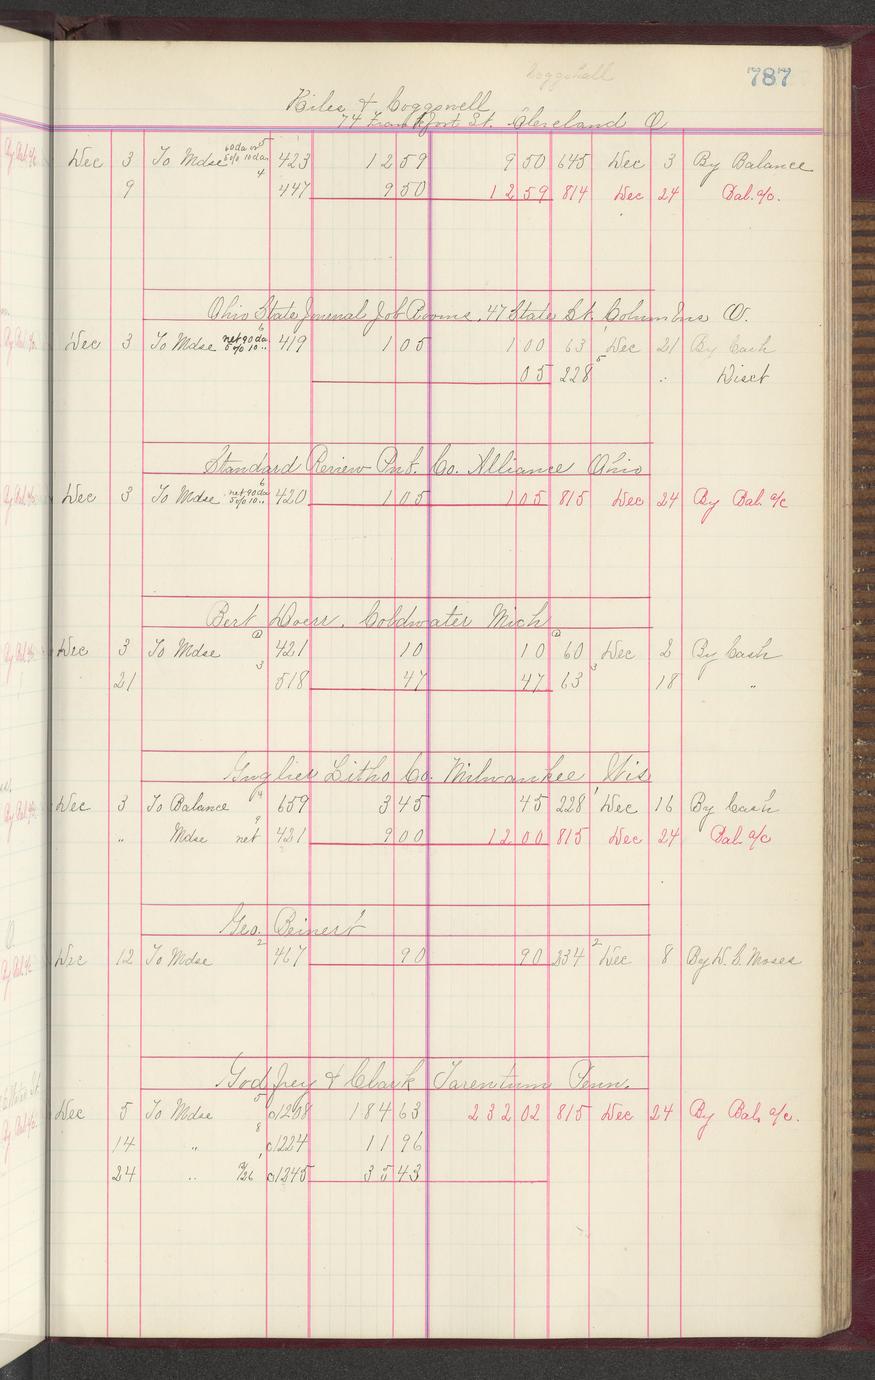 Coggshall
787
Kiles & Coggswell
74 Frankfort St. Cleveland O
Dec 3 To Mdse 60 da or 5% 10 da 5 423 12 59 9 50 645 Dec 3 By Balance
9 4 447 9 50 12 59 814 Dec 24 Bal. a/c.
Ohio State Journal Job Rooms, 47 State St. Columbus O.
Dec 3 To Mdse net 90 da 5% 10 .. 6 419 1 05 1 00 63 1 Dec 21 By Cash
05 228 5 " Disct
Standard Review Pub. Co. Alliance Ohio
Dec 3 To Mdse net 90 da 5% 10 .. 6 420 1 05 1 05 815 Dec 24 By Bal. a/c
Bert Doerr, Coldwater Mich
Dec 3 To Mdse 421 10 10 60 Dec 2 By Cash
21 3 518 47 47 63 3 18 "
Litho Co. Milwaukee Wis
Dec 3 To Balance 4 659 3 45 45 228 1 Dec 16 By Cash
" Mdse net 9 421 9 00 12 00 815 Dec 24 Bal a/c
Geo. Beinert
Dec 12 To Mdse 2 467 90 90 234 2 Dec 8 By W. C. Moses
Godfrey & Clark Tarentum Penn.
Dec 5 To Mdse 5 01208 184 63 232 02 815 Dec 24 By Bal. a/c.
14 " 8 01224 11 96
24 " 1 01245 35 43
By Bal. a/c
By Bal. a/c
By Bal. a/c
By Bal. a/c
By Bal. a/c
O.
By Bal. a/c
By Bal. a/c